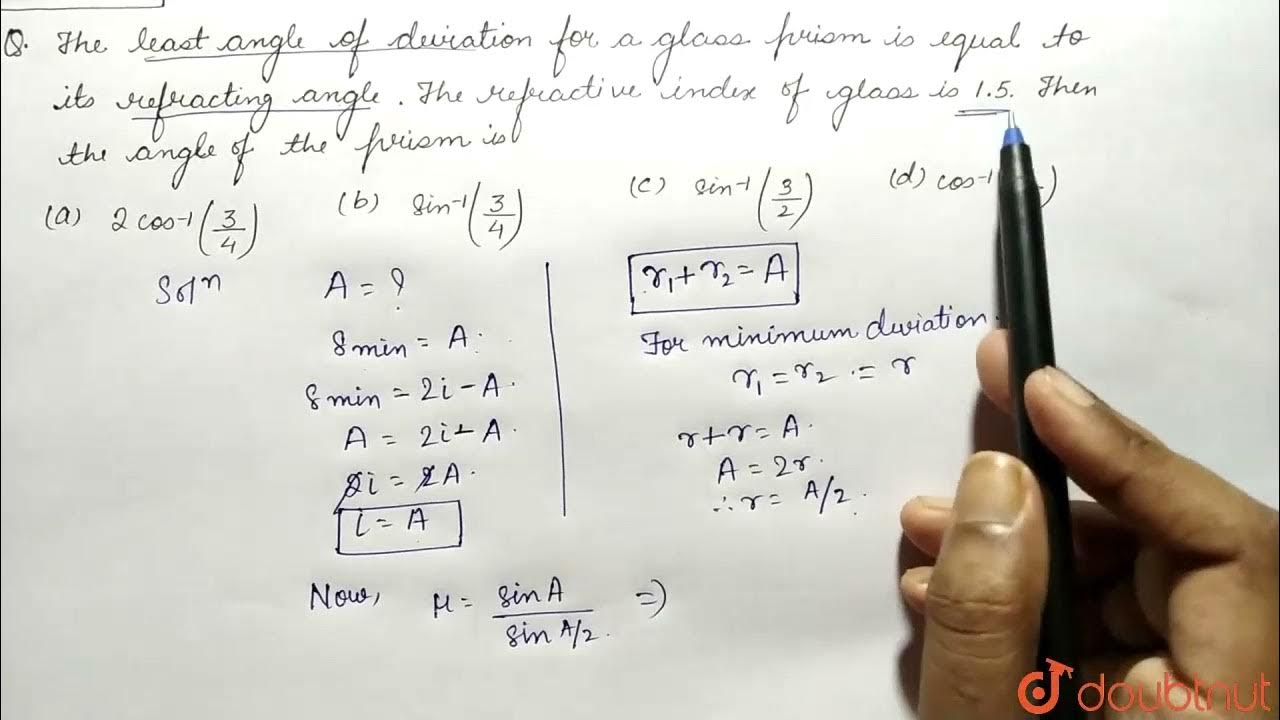 Q. The least angle of deviation for a glass prism is equal to
its refracting angle. The refractive index of glass is 1.5. Then
the angle of the prism is
(a) 2 cos⁻¹(3/4) (b) sin⁻¹(3/4) (c) sin⁻¹(3/2) (d) cos⁻¹(
Solⁿ
A = ?
δmin = A.
δmin = 2i - A.
A = 2i - A.
2i = 2A.
i = A
r₁ + r₂ = A
For minimum deviation.
r₁ = r₂ = r
r + r = A.
A = 2r.
∴ r = A/2.
Now, μ = sin A / sin A/2. ⇒
doubtnut